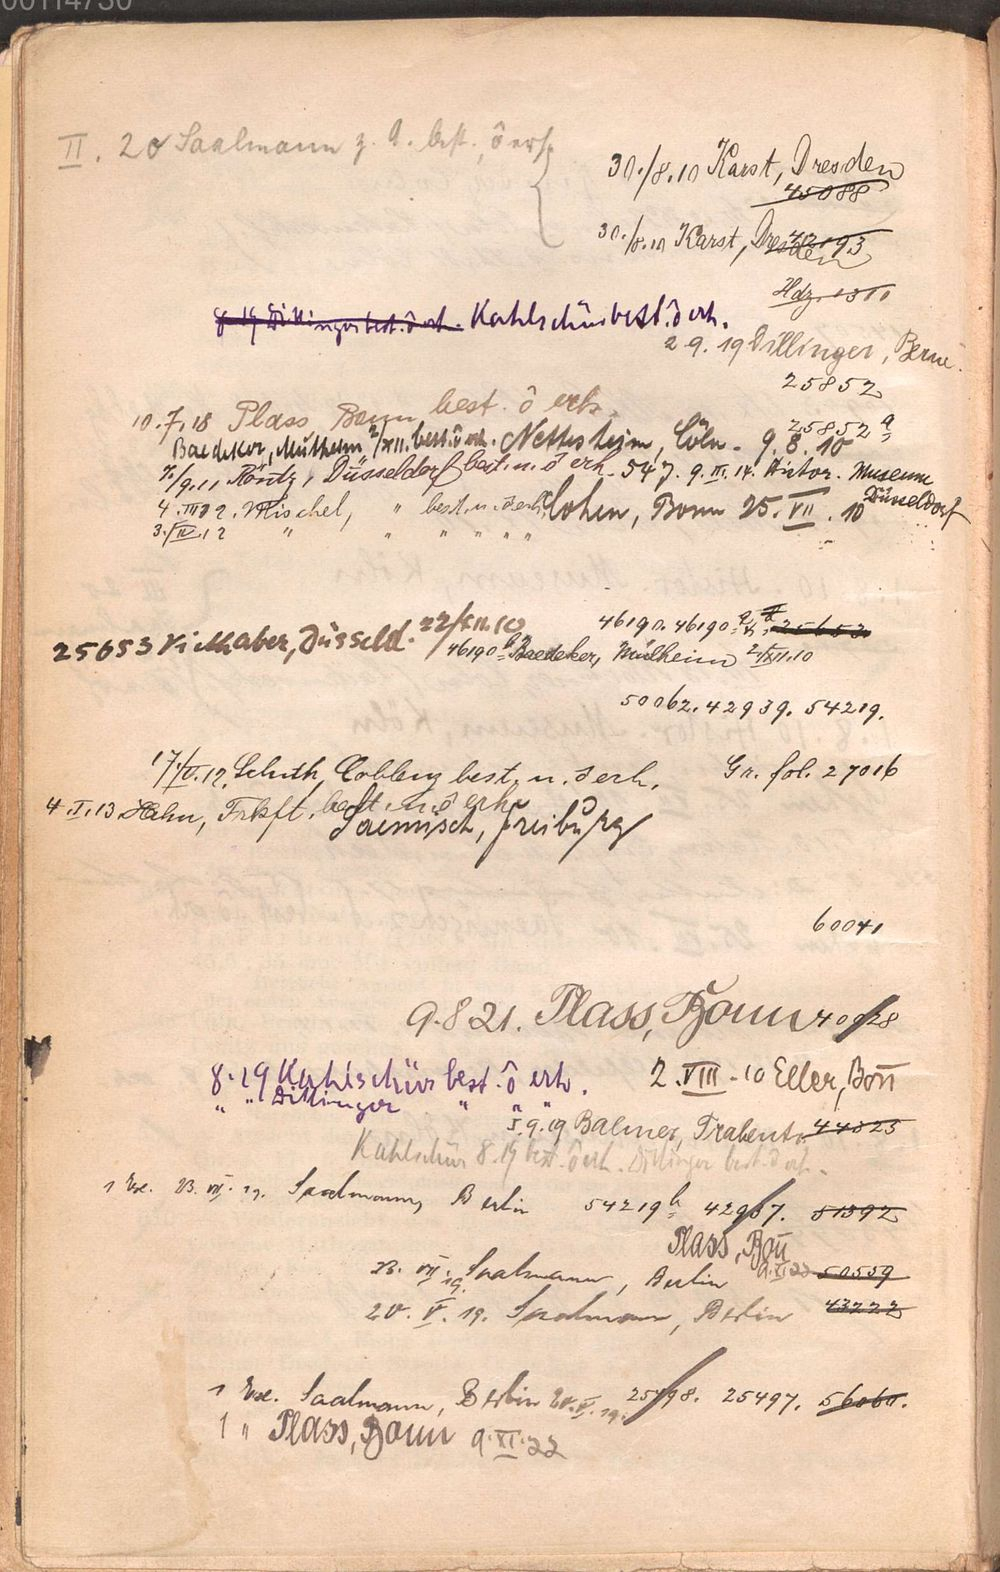 00114750
II. 20 Saalmann z. A. best. ô erh.
30./8.10 Karst, Dresden
45088
30./8.10 Karst, Dresden
42193
Hdz. 1310
8.19 Dillinger best. ô erh. Kahlschür best. ô erh.
2 9. 19 Dillinger, Berne.
25852
10.7.18 Plass, Bonn best. ô erh.
25852 a
Baedeker, Mülheim 2/XII. best. ô erh. Nettesheim, Cöln. 9. 8. 10
7./9.11 Röntz, Düsseldorf best. u. ô erh. 547. 9. III. 14. Histor. Museum
Düsseldorf
4. III 12. Mischel, " best. u. ô erh. Cohen, Bonn 25. VII. 10
3./IV. 12 " " " " " "
46190. 46190 a 25653
25653 Viethaber, Düsseld. 22/XII.10
46190 b Baedeker, Mülheim 2./XII.10
50062. 42939. 54219.
17./V.12. Schuth, Coblenz best. u. ô erh.
Gr. fol. 27016
4 II.13 Hahn, Frkft. best. u. ô erh.
Saemisch, Freiburg
60041
9.8 21. Plass, Bonn 40928
8.19 Kahlschür best. ô erh.
2. VIII. 10 Eller, Bonn
" " Dillinger " " "
5.9.19 Balmer, Trabent. 44825
Kahlschür 8.19 best. ô erh. Dillinger best. ô erh.
1 Ex. 23. VII. 19. Saalmann, Berlin 54219 b 42967. 51392
Plass, Bonn
9.XI.22
23. VII. 19. Saalmann, Berlin 50559
20. V. 19. Saalmann, Berlin 43222
1 Ex. Saalmann, Berlin 20.V.19. 25498. 25497. 56060.
1 " Plass, Bonn 9.XI.22